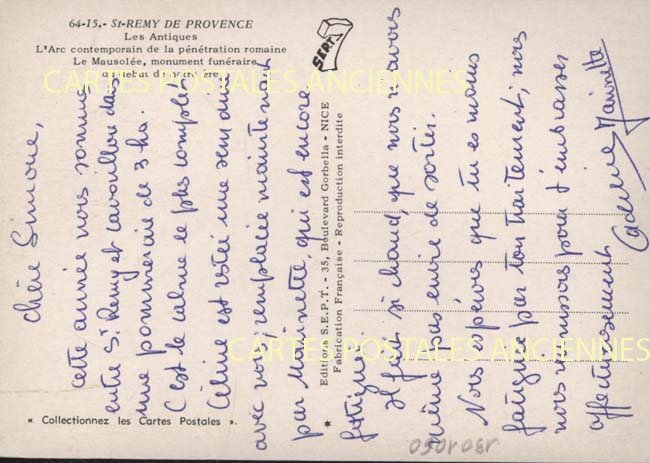 64-15.- St-REMY DE PROVENCE
Les Antiques
L'Arc contemporain de la pénétration romaine
Le Mausolée, monument funéraire,
du début de notre ère
SEPT
Chère Simone,
cette année nous sommes
entre St Remy et Cavaillon dans
une pommeraie de 3 ha.
C'est le calme le plus complet
Céline est restée une semaine
avec nous, remplacée maintenant
par Mainette, qui est encore
fatiguée
Il fait si chaud, que nous n'avons
même pas envie de sortir.
Nous espérons que tu es moins
fatiguée par ton traitement; nous
nous réunissons pour t'embrasser
affectueusement
Mainette
Editions S.E.P.T. - 35, Boulevard Gorbella - NICE
Fabrication Française - Reproduction interdite
« Collectionnez les Cartes Postales ».
CARTES POSTALES ANCIENNES
CARTES POSTALES ANCIENNES